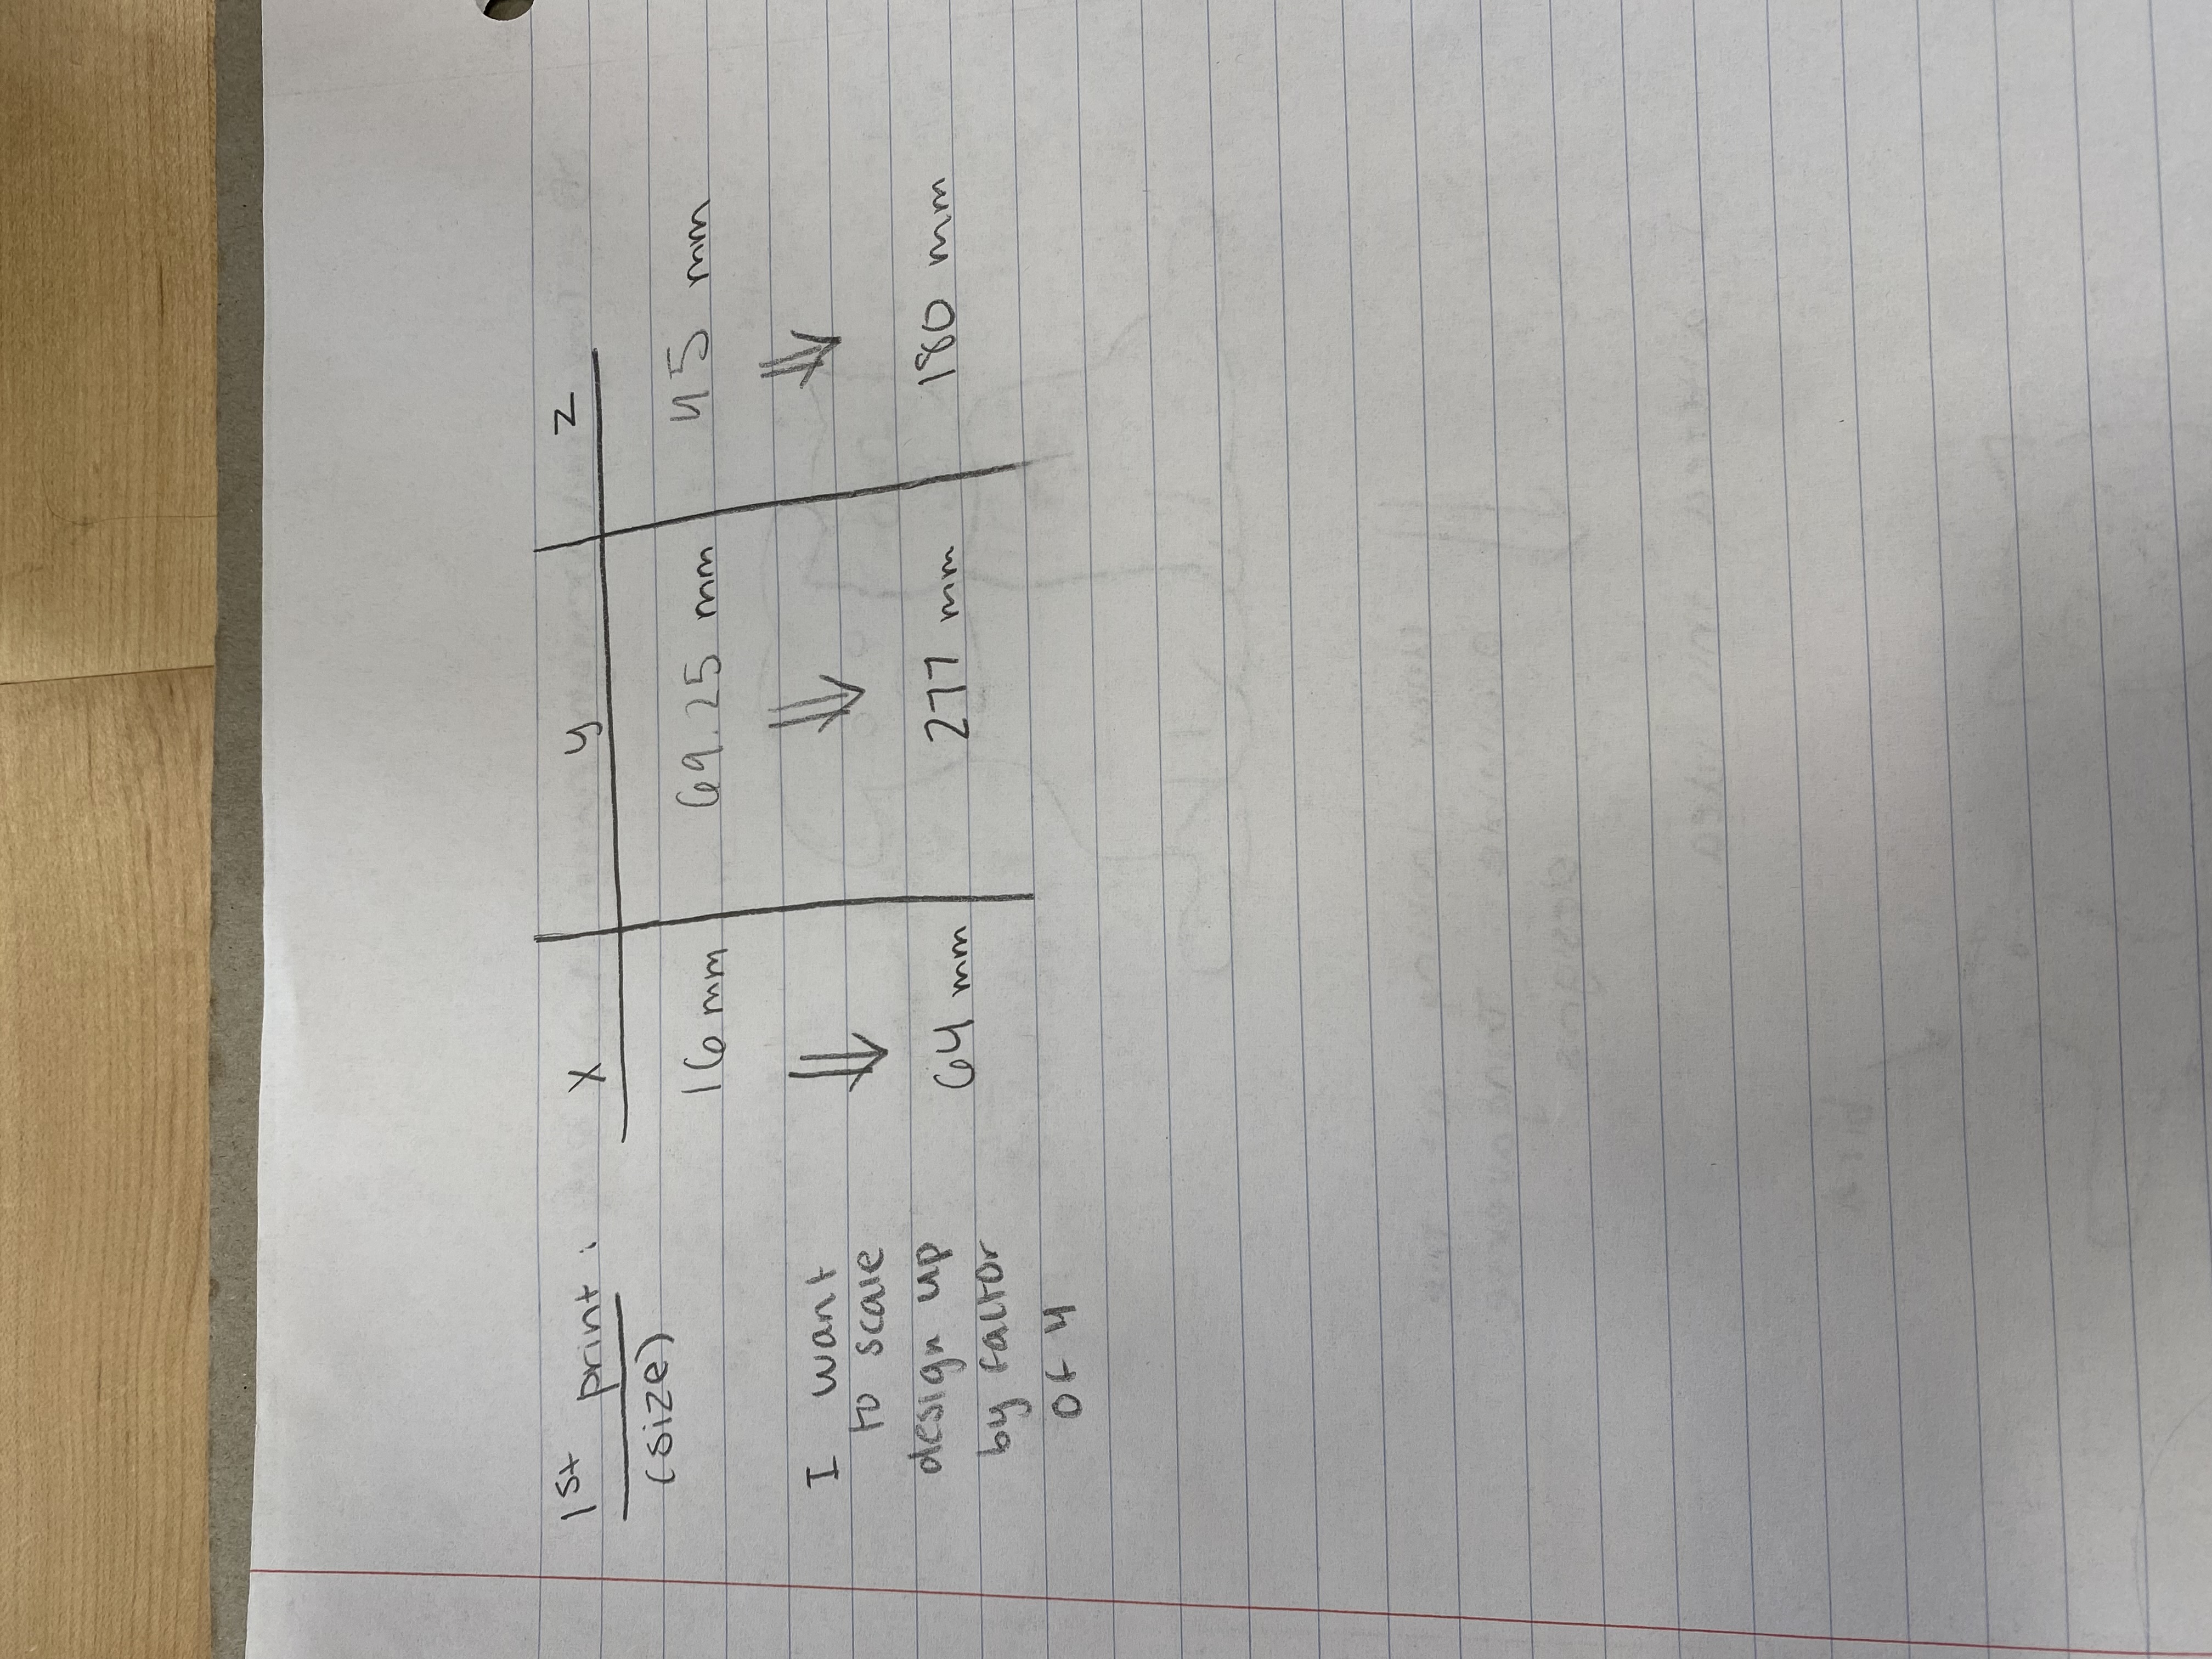 1st print : x y z
(size)
16 mm 69.25 mm 45 mm
I want
to scale
design up
by factor
of 4
64 mm 277 mm 180 mm
designs